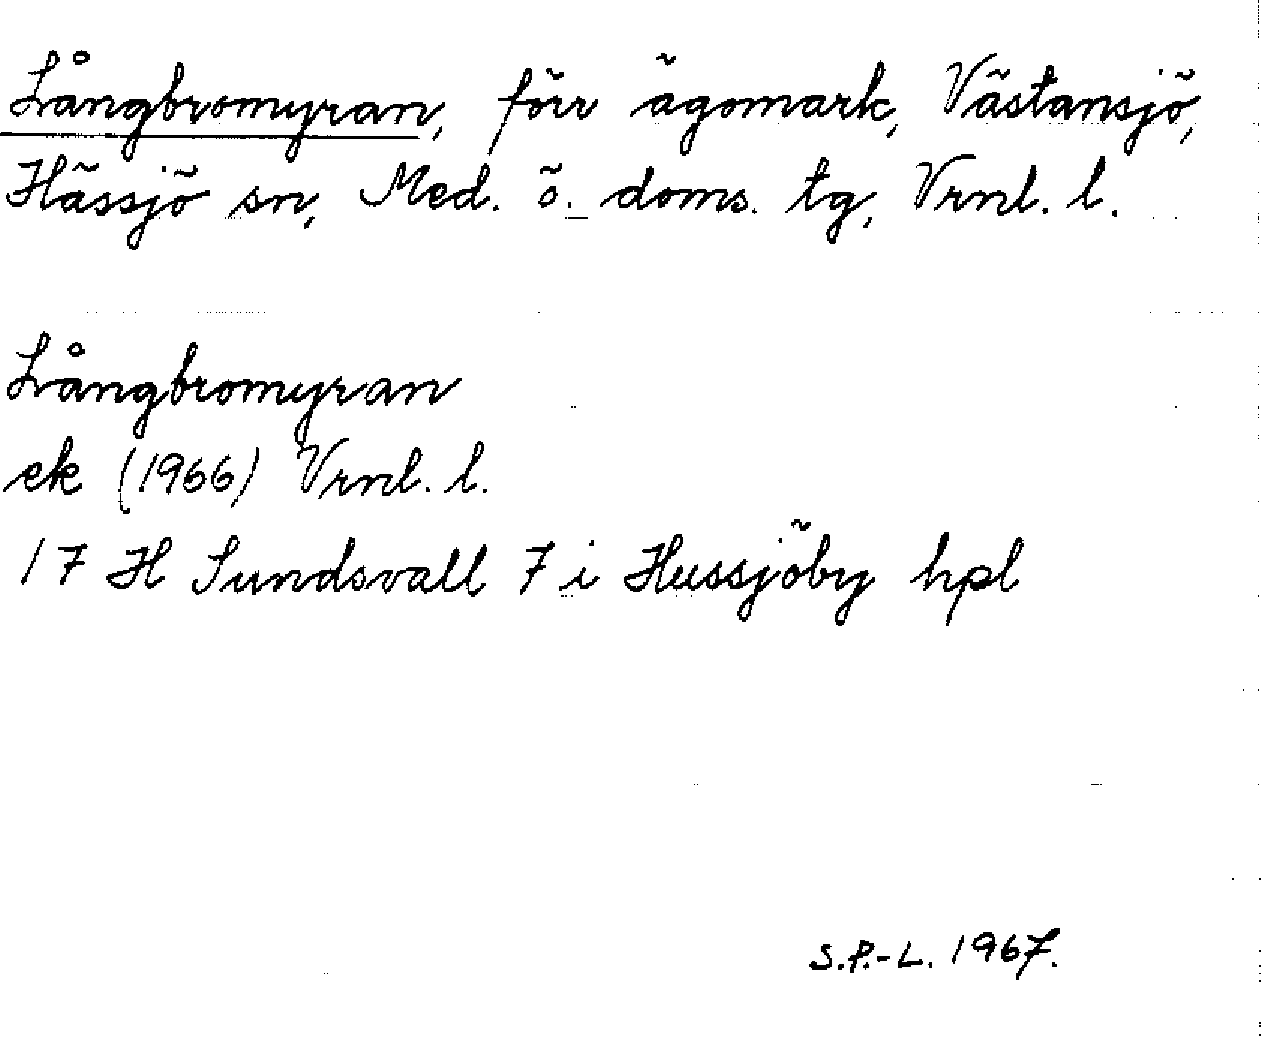 Långbromyran, förr ägomark, Västansjö,
Hässjö sn, Med. ö. doms. tg, Vrnl. l.
Långbromyran
ek (1966) Vrnl. l.
17 H Sundsvall 7 i Hussjöby hpl
S.P.-L. 1967.